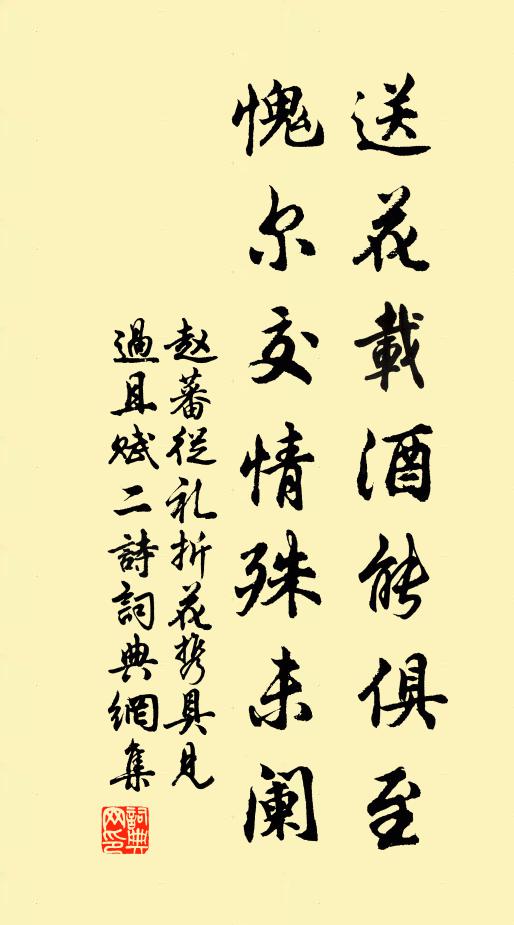 送花載酒能俱至
愧尔交情殊未阑
赵蕃從礼折花携具見
過且赋二詩詞典網集
詞典
网印